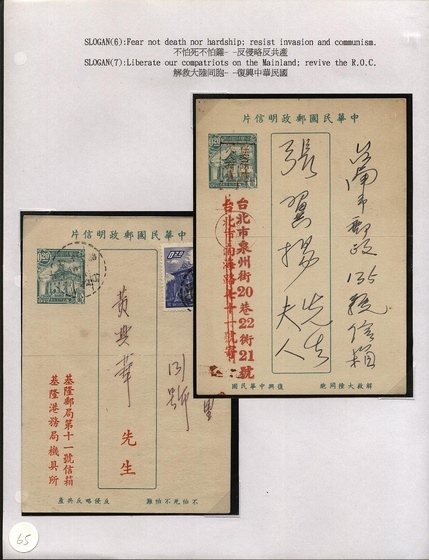 SLOGAN(6):Fear not death nor hardship; resist invasion and communism.
不怕死不怕難- -反侵略反共產
SLOGAN(7):Liberate our compatriots on the Mainland; revive the R.O.C.
解救大陸同胞- -復興中華民國
片信明政郵國民華中
張翼揚先生
夫人
台北市泉州街20巷22街21號
台北市南海路
復興中華民國
解救大陸同胞
片信明政郵國民華中
0.20
黃典華先生
131號
基隆郵局第十一號信箱
基隆港務局機具所
反侵略反共產
不怕死不怕難
65